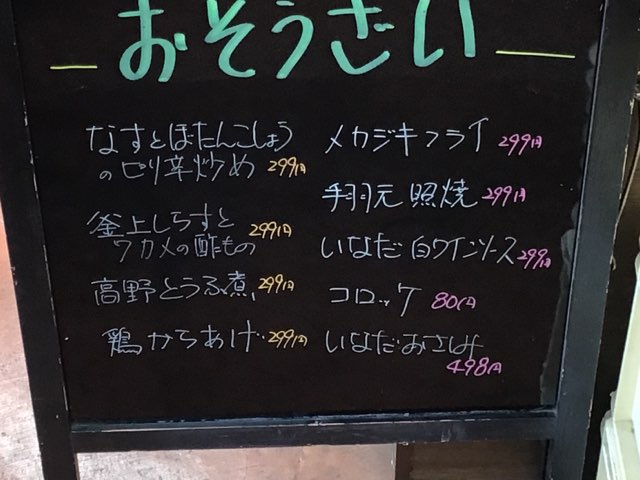 おそうざい
なすとぼたんこしょう
のピリ辛炒め 299円
釜上しらすと
ワカメの酢もの 299円
高野とうふ煮 299円
鶏からあげ 299円
メカジキフライ 299円
手羽元照焼 299円
いなだ白ワインソース 299円
コロッケ 80円
いなだおさしみ
498円